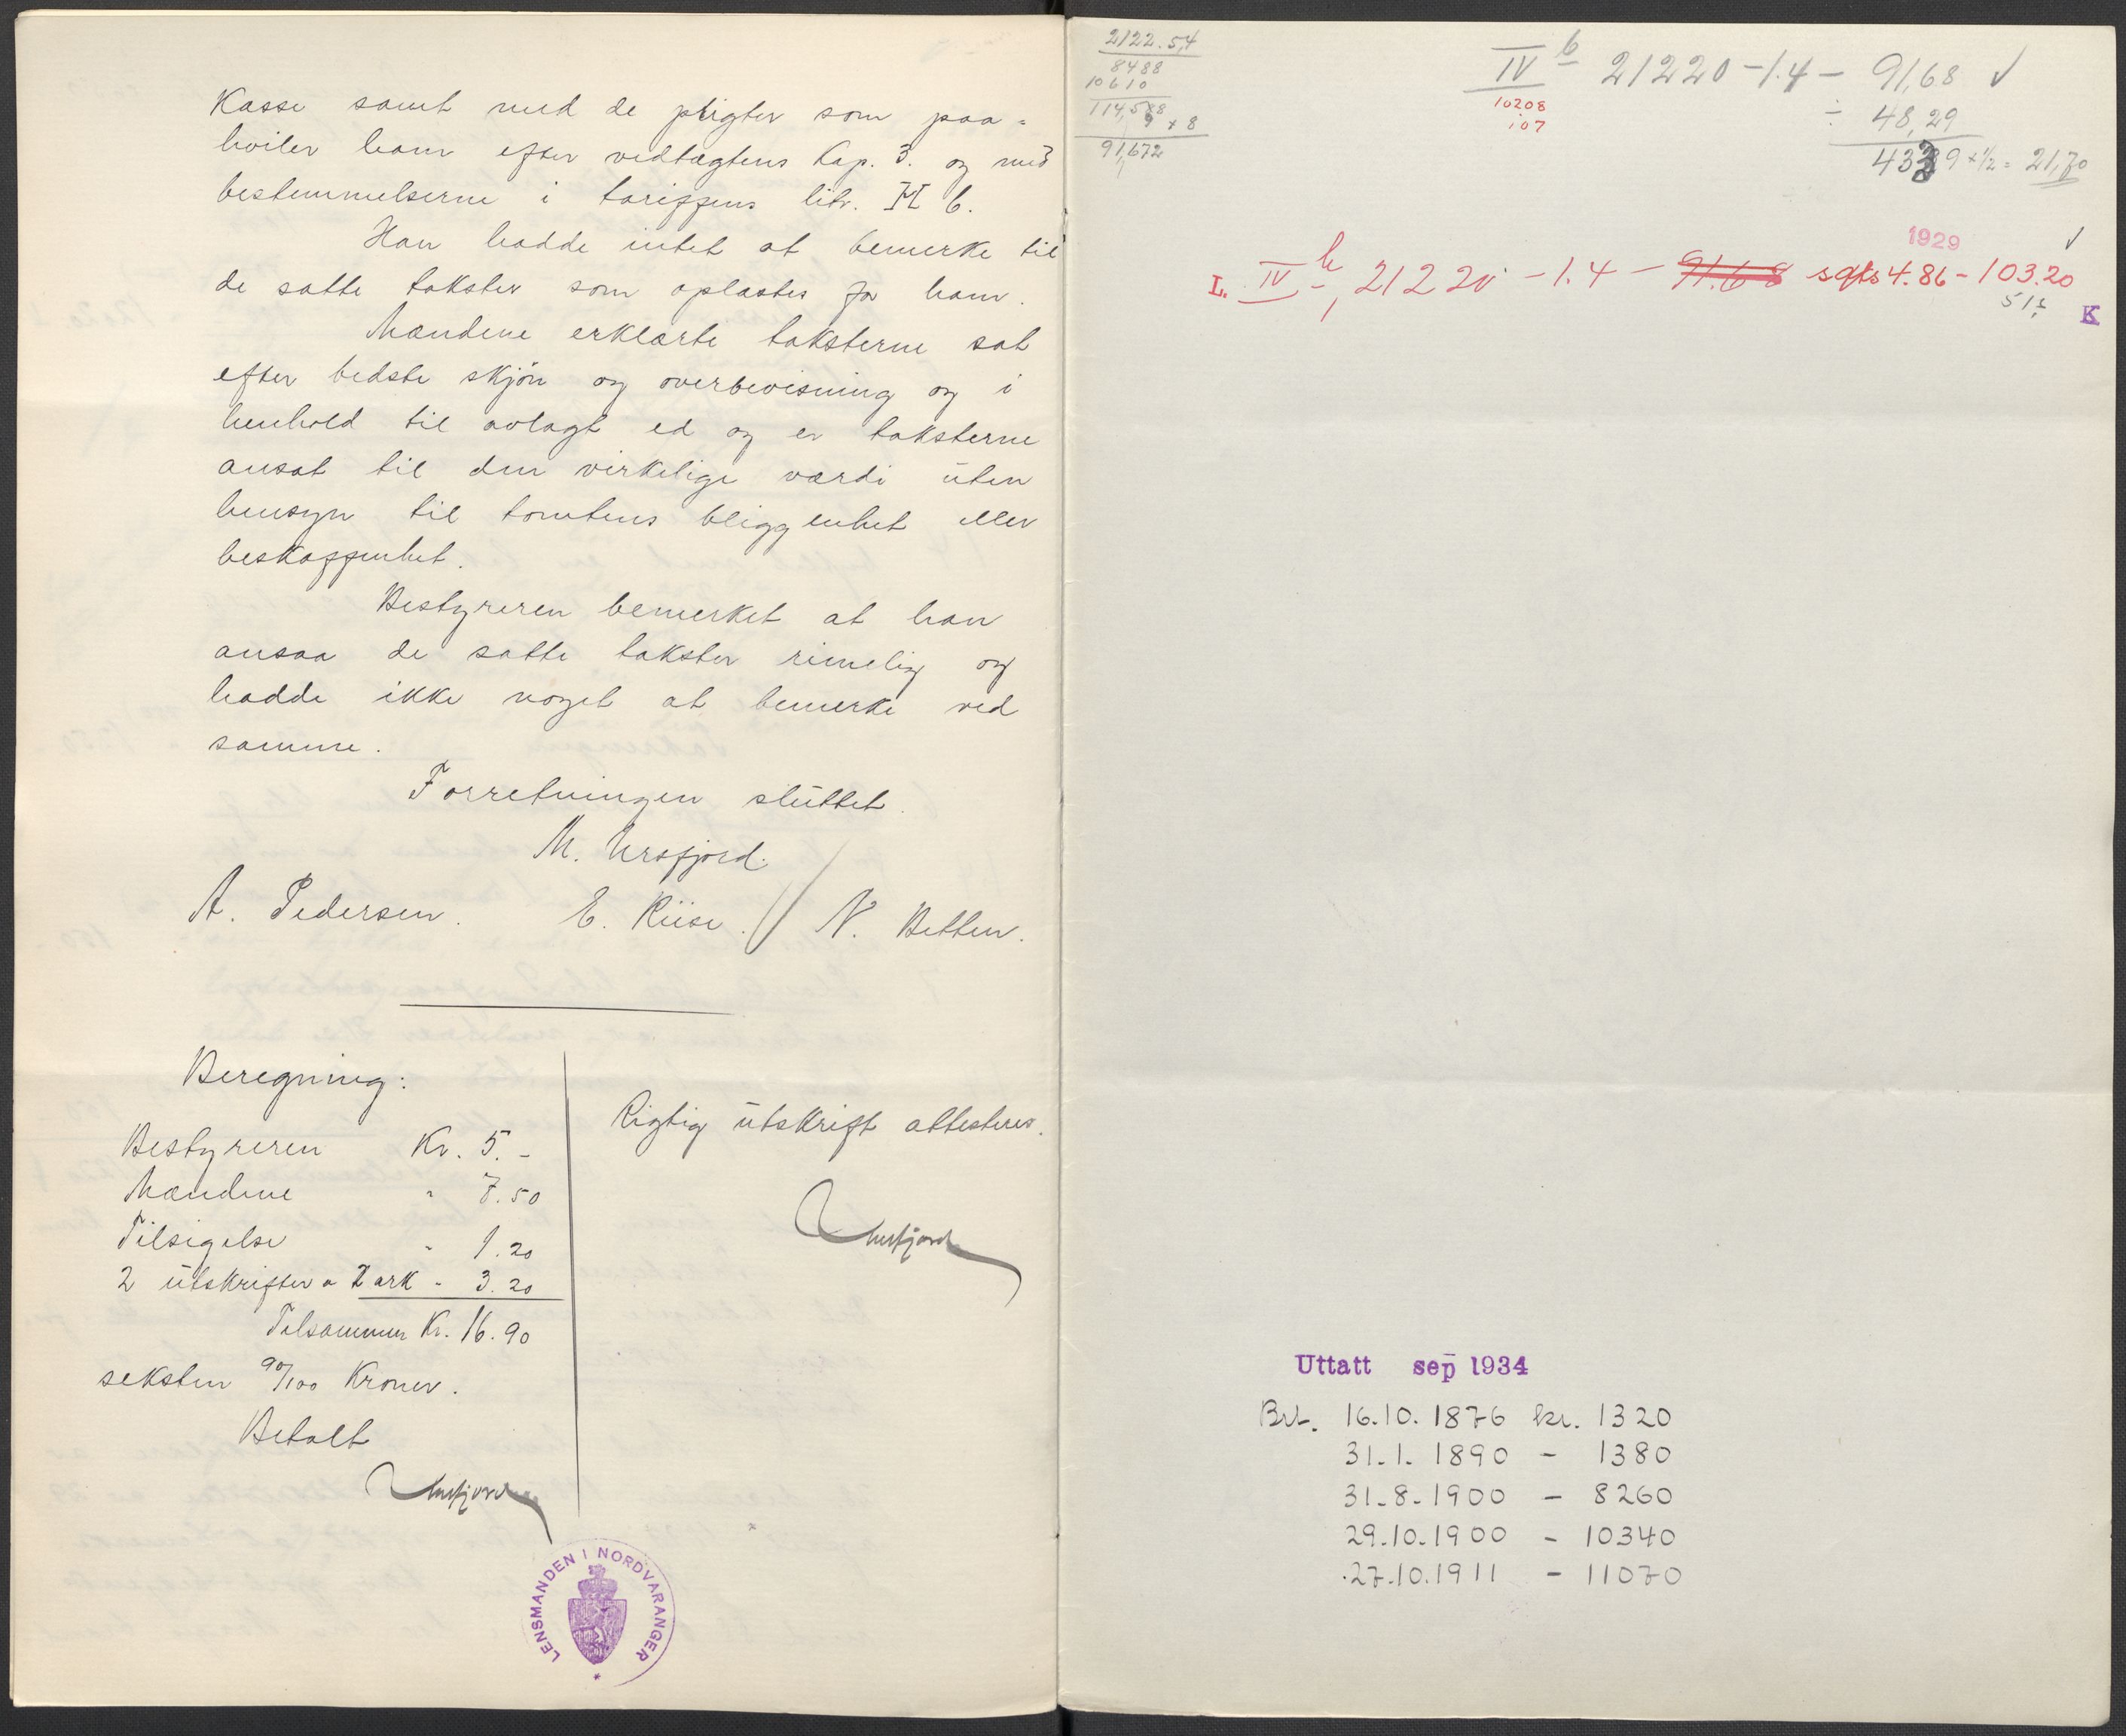 Kasse samt med de pligter som paa-
hviler ham efter vedtægtens Kap. 3. og med
bestemmelserne i tariffens litr. H 6.
Han hadde intet at bemerke til
de satte takster som oplæstes for ham.
Mændene erklærte taksterne sat
efter bedste skjön og overbevisning og i
henhold til avlagt ed og er taksterne
ansat til den virkelige værdi uten
hensyn til tomtens bliggenhet eller
beskaffenhet.
Bestyreren bemerket at han
ansaa de satte takster rimelig og
hadde ikke noget at bemerke ved
samme.
Forretningen sluttet.
M. Ursfjord.
A. Pedersen. E. Kiise. // N. Betten.
Beregning:
Bestyreren Kr. 5.-
Mændene " 7.50
Tilsigelse " 1.20
2 utskrifter a 2 ark - 3.20
Tilsammen Kr. 16.90
seksten 90/100 Kroner.
Betalt
Ursfjord
Rigtig utskrift attesteres.
Ursfjord
LENSMANDEN I NORDVARANGER *
2122.5,4
8488
10610
114,588
9 + 8
91,672
IV b 21220 - 1.4 - 91,68 √
10208
107
÷ 48,29
4339 + 1/2 = 21,70
1929 √
L. IV b, 21220 - 1.4 - 91.68 sqts 4.86 - 103.20
K
Uttatt sep 1934
Brt. 16.10.1876 kr. 1320
31.1.1890 - 1380
31-8-1900 - 8260
29.10.1900 - 10340
27.10.1911 - 11070